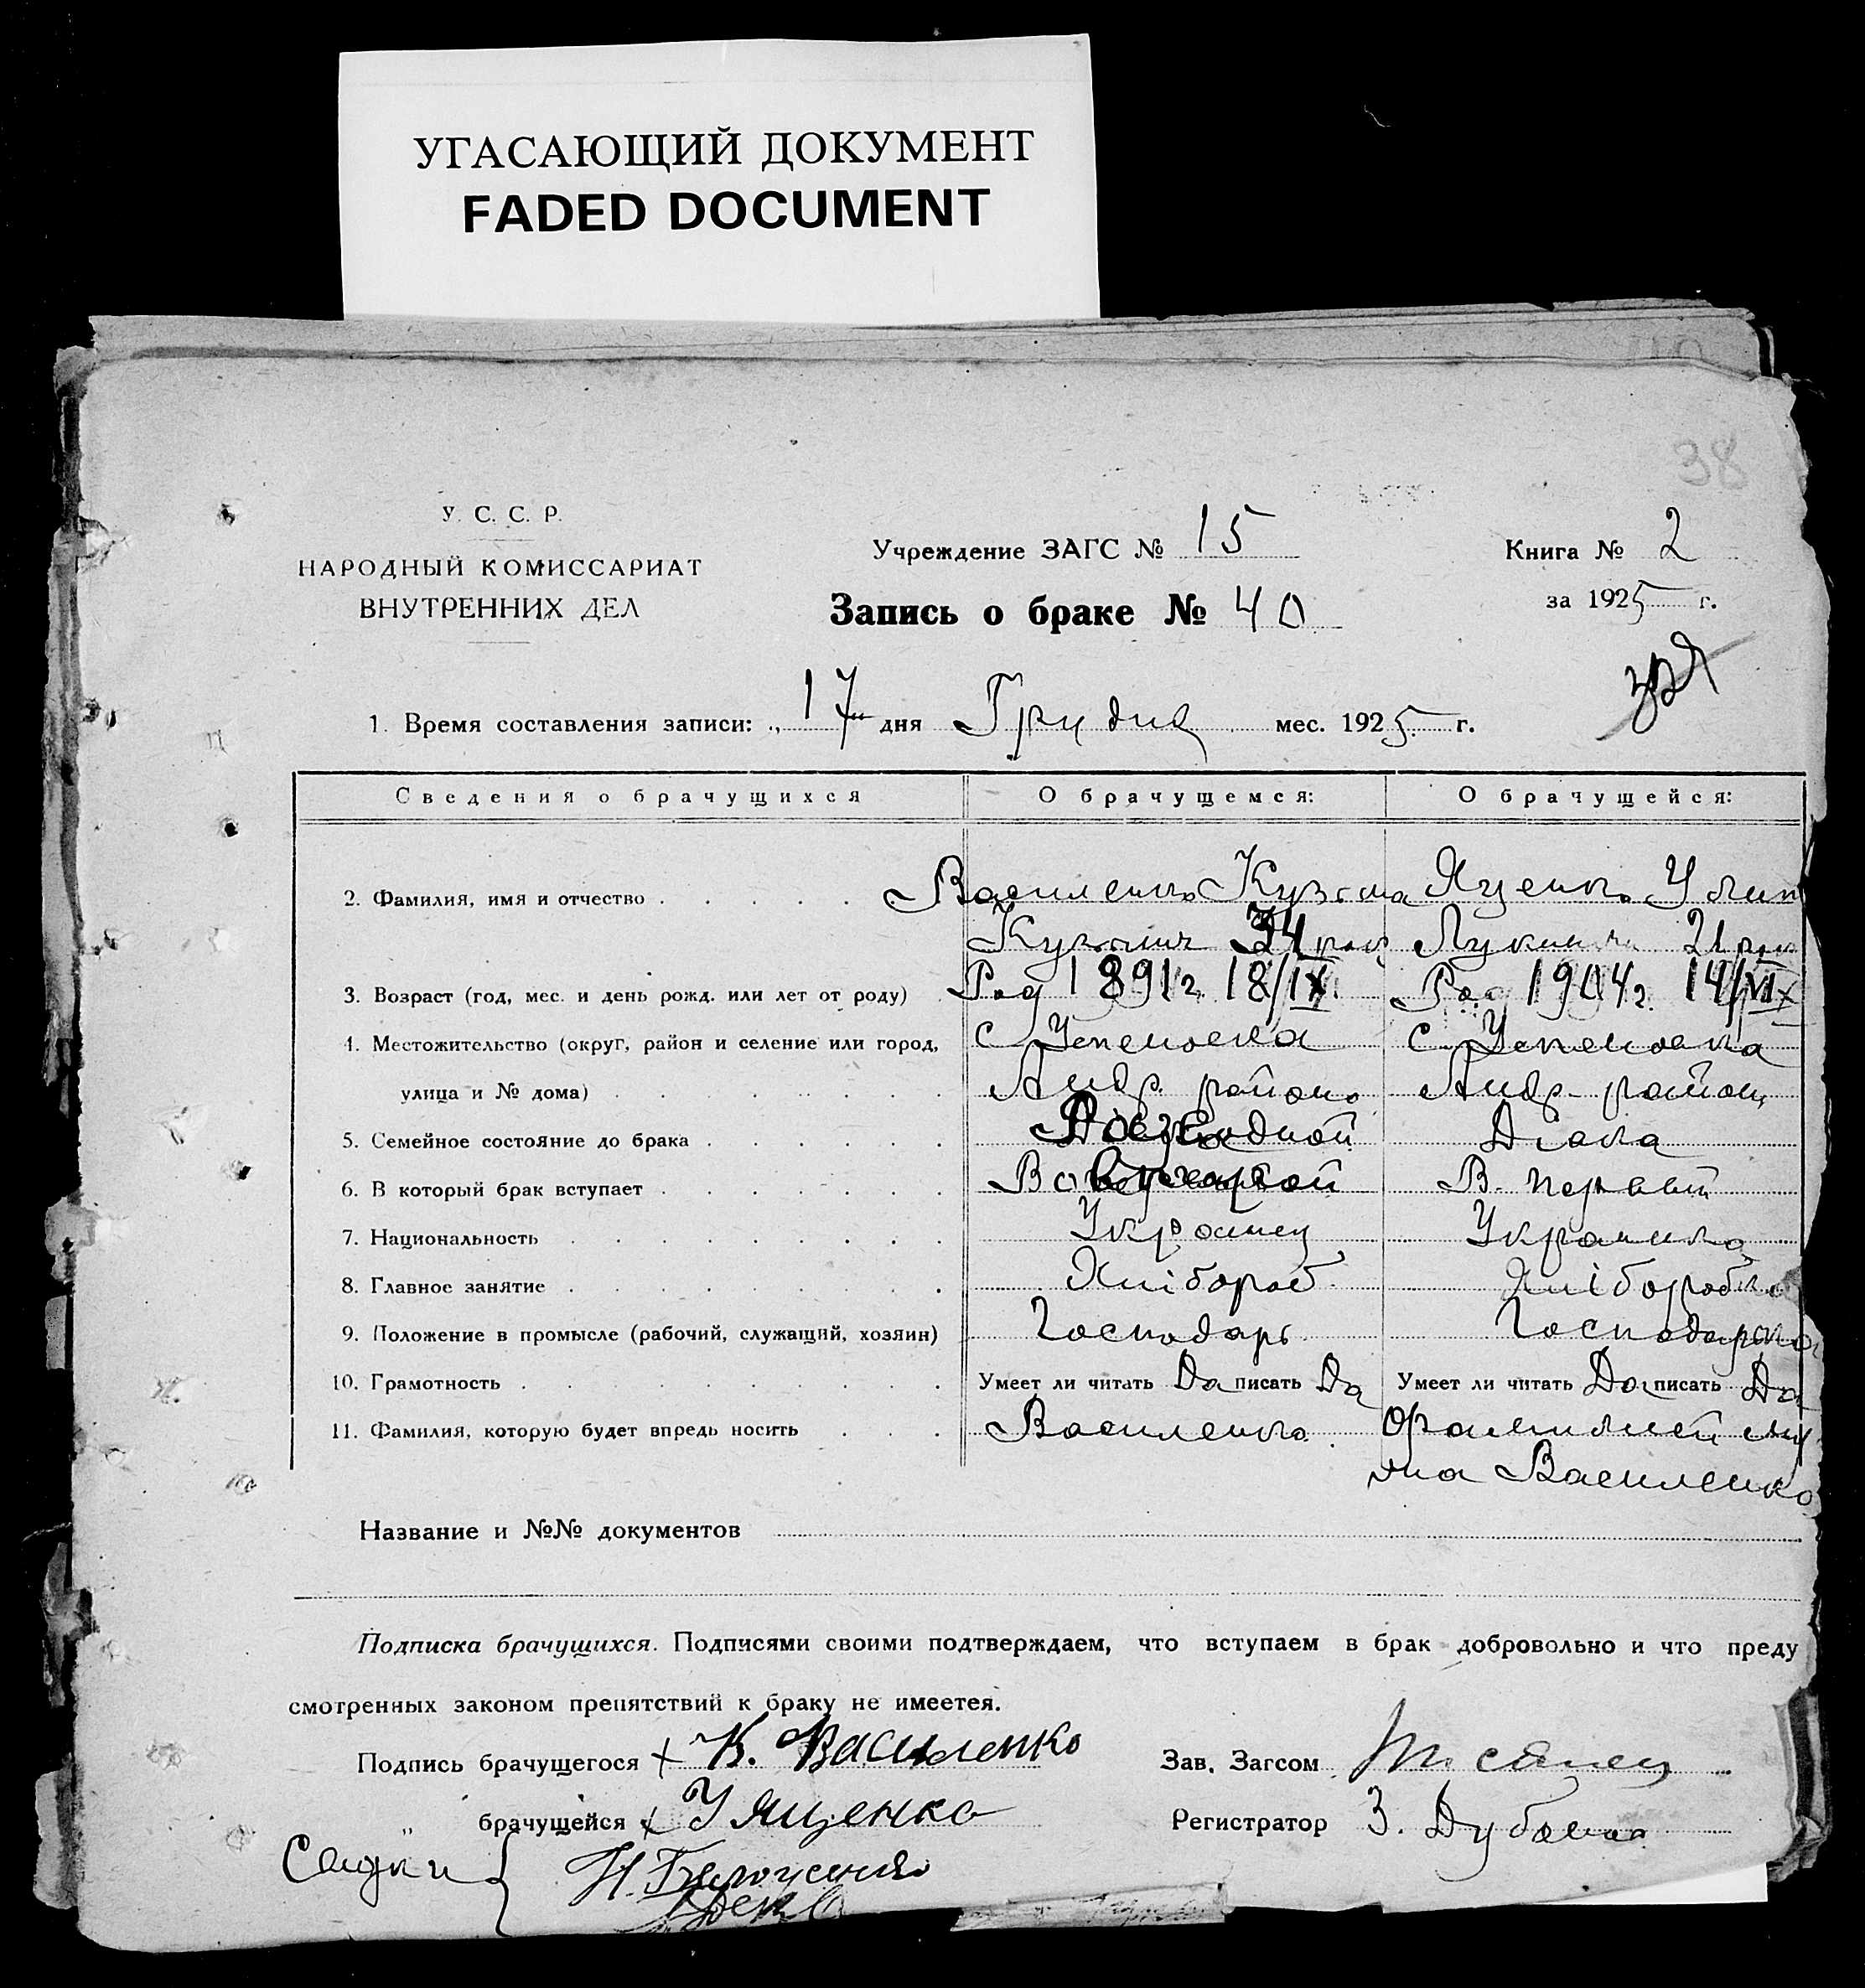 УГАСАЮЩИЙ ДОКУМЕНТ
FADED DOCUMENT
38
У. С. С. Р.
НАРОДНЫЙ КОМИССАРИАТ
ВНУТРЕННИХ ДЕЛ
Учреждение ЗАГС № 15
Запись о браке № 40
Книга № 2
за 1925 г.
1. Время составления записи: „17" дня Грудня мес. 1925 г.
Сведения о брачущихся О брачущемся: О брачущейся:
2. Фамилия, имя и отчество Василенко Кузьма Яценко Улит
Кузьмич 34 рок Лукинична 21 рок
3. Возраст (год, мес. и день рожд. или лет от роду) Род 1891 г. 18/IX. Род 1904 г.
4. Местожительство (округ, район и селение или город, с Успеновка с Успеновка
улица и № дома) Андр. району Андр. району
5. Семейное состояние до брака Дівка
6. В который брак вступает В первый
7. Национальность Украинец Украинка
8. Главное занятие Хлібороб Хліборобка
9. Положение в промысле (рабочий, служащий, хозяин) Господарь Господарка
10. Грамотность Умеет ли читать Да писать Да Умеет ли читать Да писать Да
11. Фамилия, которую будет впредь носить Василенко Фамилией му
жа Василенко
Название и №№ документов
Подписка брачущихся. Подписями своими подтверждаем, что вступаем в брак добровольно и что преду
смотренных законом препятствий к браку не имеется.
Подпись брачущегося К. Василенко Зав. Загсом
„ брачущейся У Яценко Регистратор З. Дубовик
Свідки